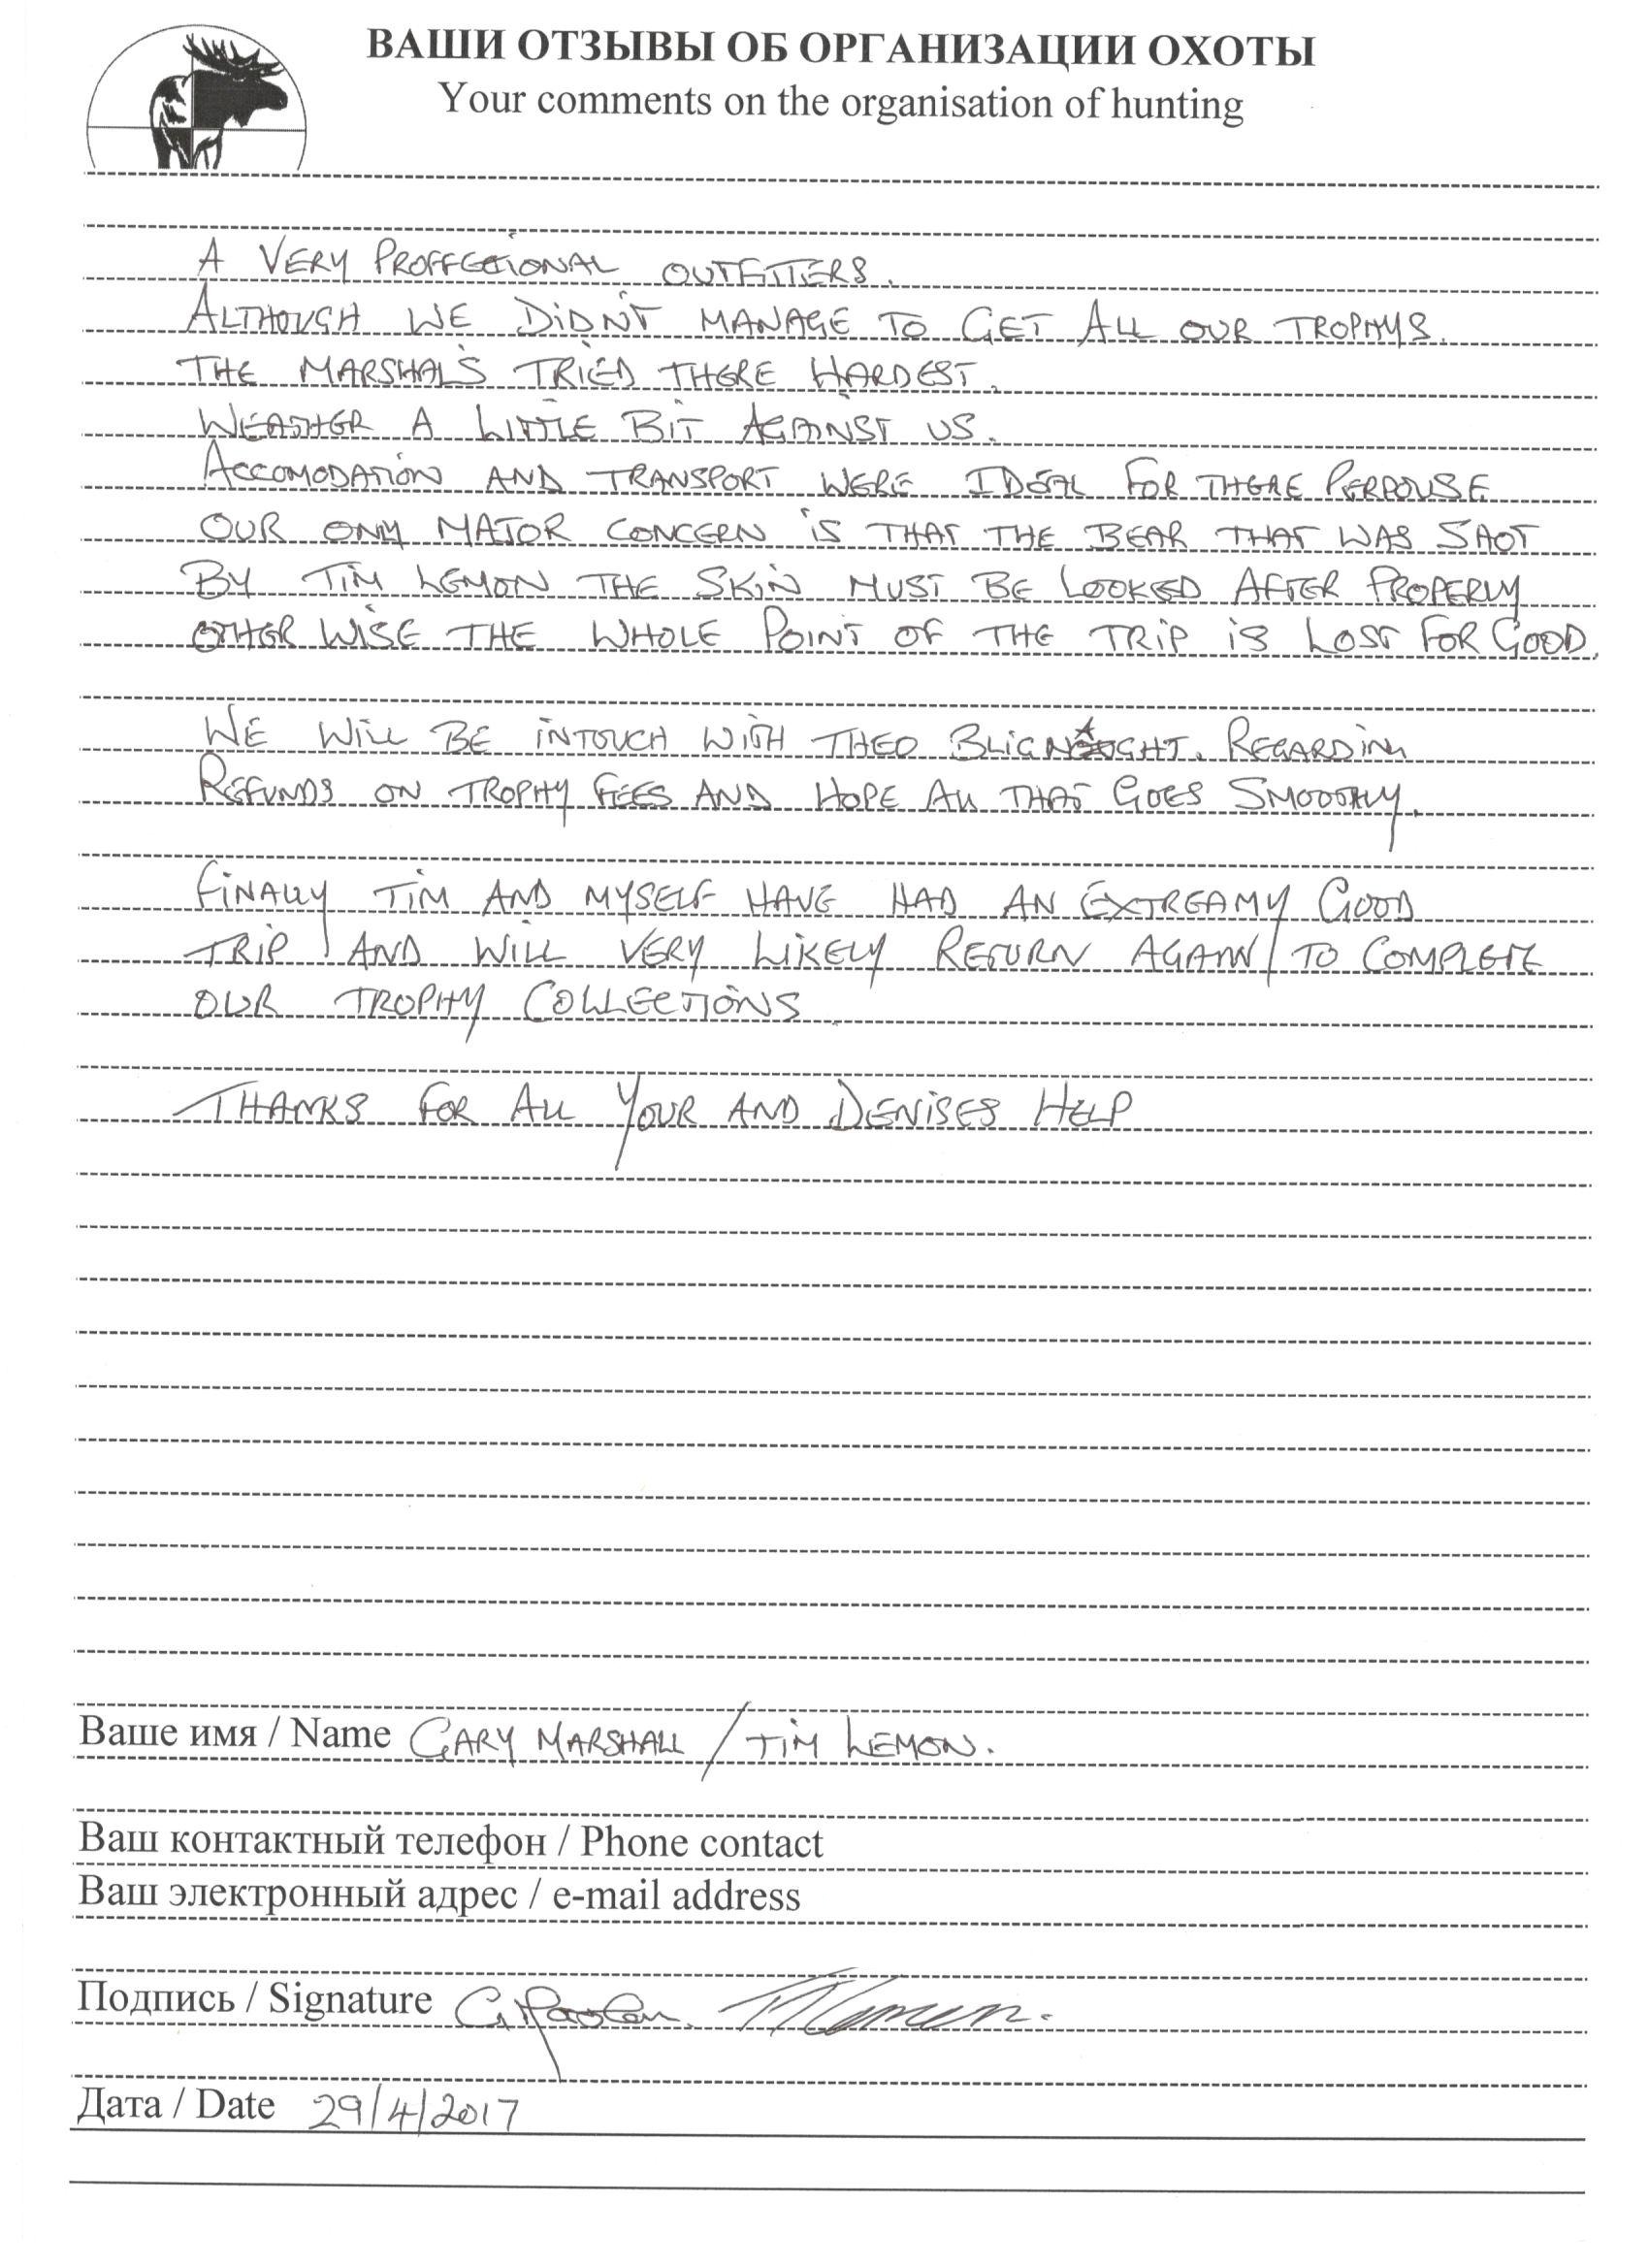 ВАШИ ОТЗЫВЫ ОБ ОРГАНИЗАЦИИ ОХОТЫ
Your comments on the organisation of hunting
A VERY PROFFESIONAL OUTFITTERS.
ALTHOUGH WE DIDN'T MANAGE TO GET ALL OUR TROPHYS.
THE MARSHALS TRIED THERE HARDEST.
WEATHER A LITTLE BIT AGAINST US.
ACCOMODATION AND TRANSPORT WERE IDEAL FOR THERE PERPOUSE
OUR ONLY MAJOR CONCERN IS THAT THE BEAR THAT WAS SHOT
BY TIM LEMON THE SKIN MUST BE LOOKED AFTER PROPERLY
OTHER WISE THE WHOLE POINT OF THE TRIP IS LOST FOR GOOD.
WE WILL BE INTOUCH WITH THEO REGARDING
REFUNDS ON TROPHY FEES AND HOPE ALL THAT GOES SMOOTHLY.
FINALLY TIM AND MYSELF HAVE HAD AN EXTREAMY GOOD
TRIP AND WILL VERY LIKELY RETURN AGAIN TO COMPLETE
OUR TROPHY COLLECTIONS
THANKS FOR ALL YOUR AND DENISES HELP
Ваше имя / Name GARY MARSHALL / TIM LEMON.
Ваш контактный телефон / Phone contact
Ваш электронный адрес / e-mail address
Подпись / Signature
Дата / Date 29/4/2017